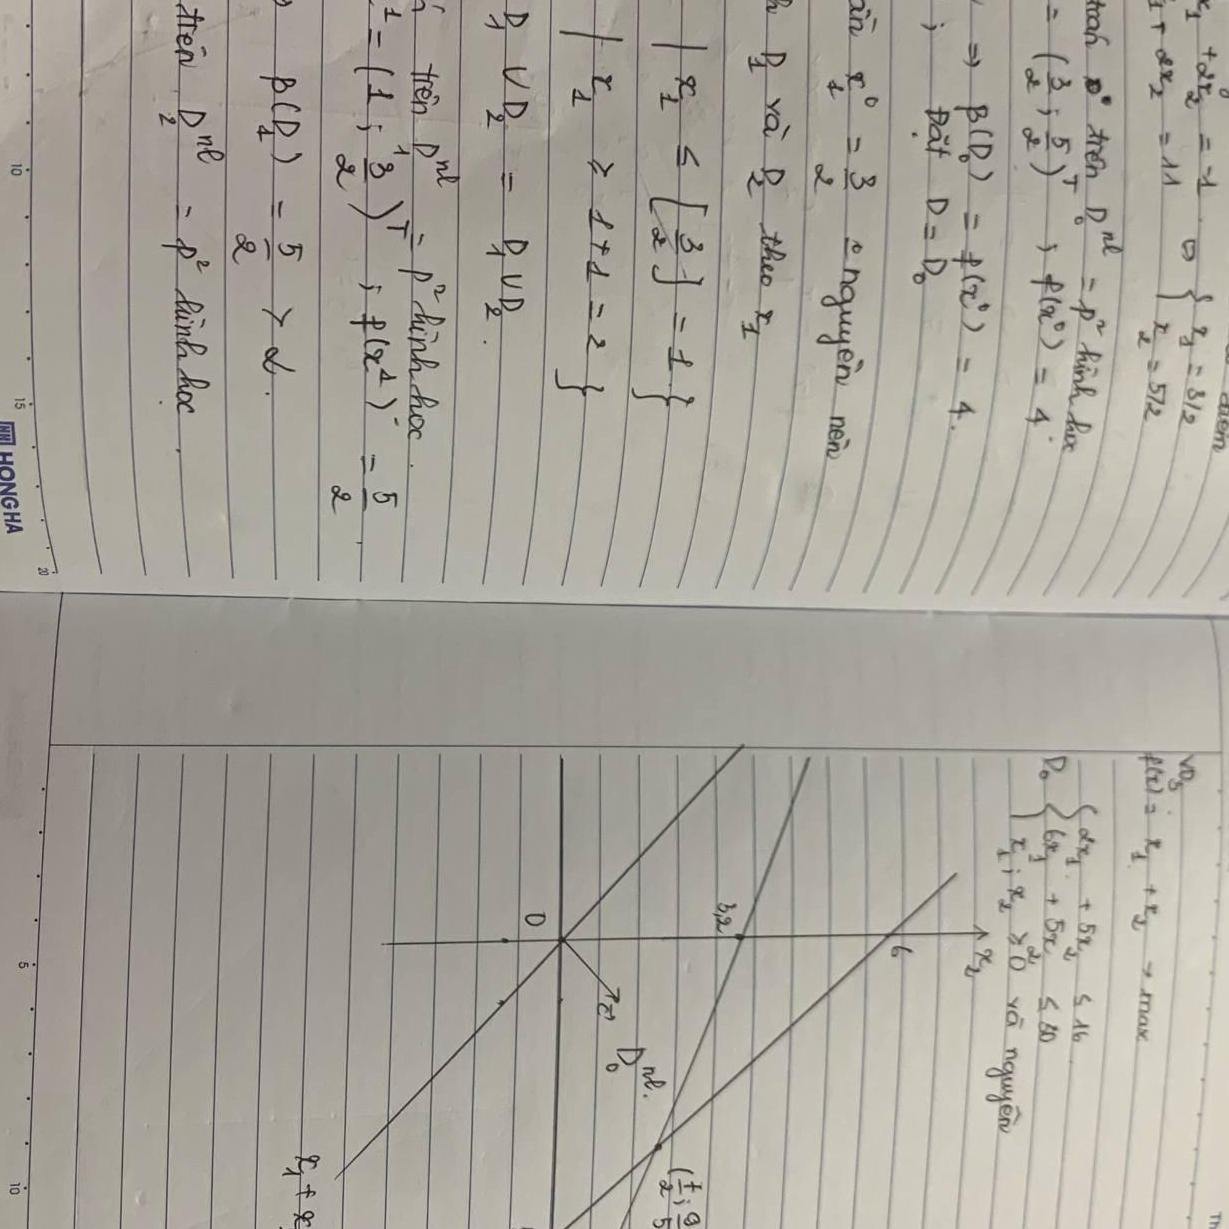 x₁ + 2x₂ = -1 ⇔ { x₁ = 3/2
+ 2x₂ = 11 { x₂ = 5/2
trên D₀ⁿˡ = p² hình học
= (3/2 ; 5/2)ᵀ ; f(x⁰) = 4
⇒ β(D₀) = f(x⁰) = 4.
; Đặt D = D₀
x₁⁰ = 3/2 nguyên nên
D₁ và D₂ theo x₁
| x₁ ≤ [3/2] = 1 }
| x₁ ≥ 1+1 = 2 }
D₁ ∪ D₂ = D₁ ∪ D₂.
trên D₁ⁿˡ = p² hình học.
¹ = (1 ; 3/2)ᵀ ; f(x¹) = 5/2
β(D₁) = 5/2 > α.
trên D₂ⁿˡ = p² hình học.
10
15
20
HONG HA
VD₃
f(x) = x₁ + x₂ → max
D₀ { 2x₁ + 5x₂ ≤ 16
6x₁ + 5x₂ ≤ 30
x₁ ; x₂ ≥ 0 và nguyên
x₂
6
3,2
0
D₀ⁿˡ.
(7/2 ; 9/5
x₁ + x
5
10